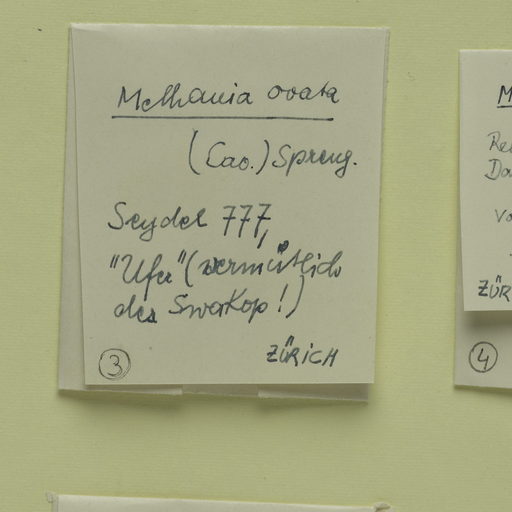 Melhania ovata
(Cav.) Spreng.
Seydel 777,
"Ufer" (vermutlich
des Swakop!)
ZÜRICH
3
M
Re
Da
Vo
ZÜR
4